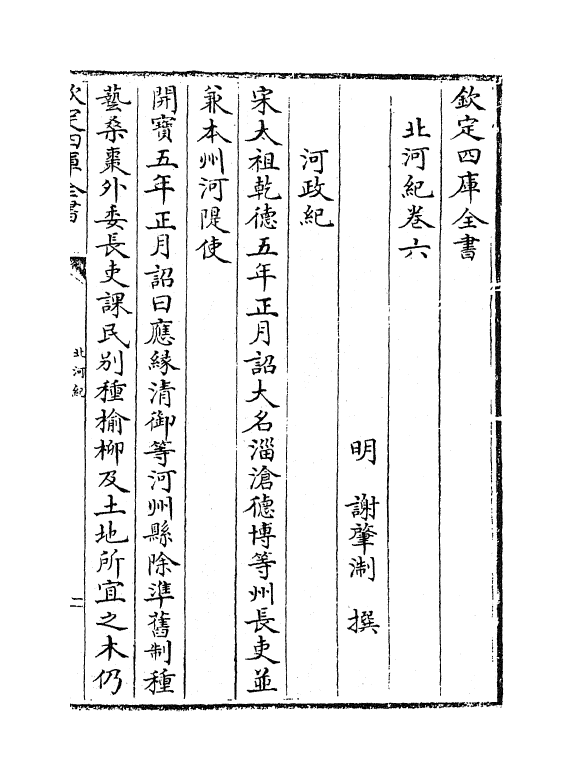 欽定四庫全書
北河紀卷六
明 謝肇淛 撰
河政紀
宋太祖乾德五年正月詔大名淄滄德博等州長吏並
兼本州河隄使
開寶五年正月詔曰應緣清御等河州縣除準舊制種
藝桑棗外委長吏課民別種榆柳及土地所宜之木仍
欽定四庫全書
北河紀